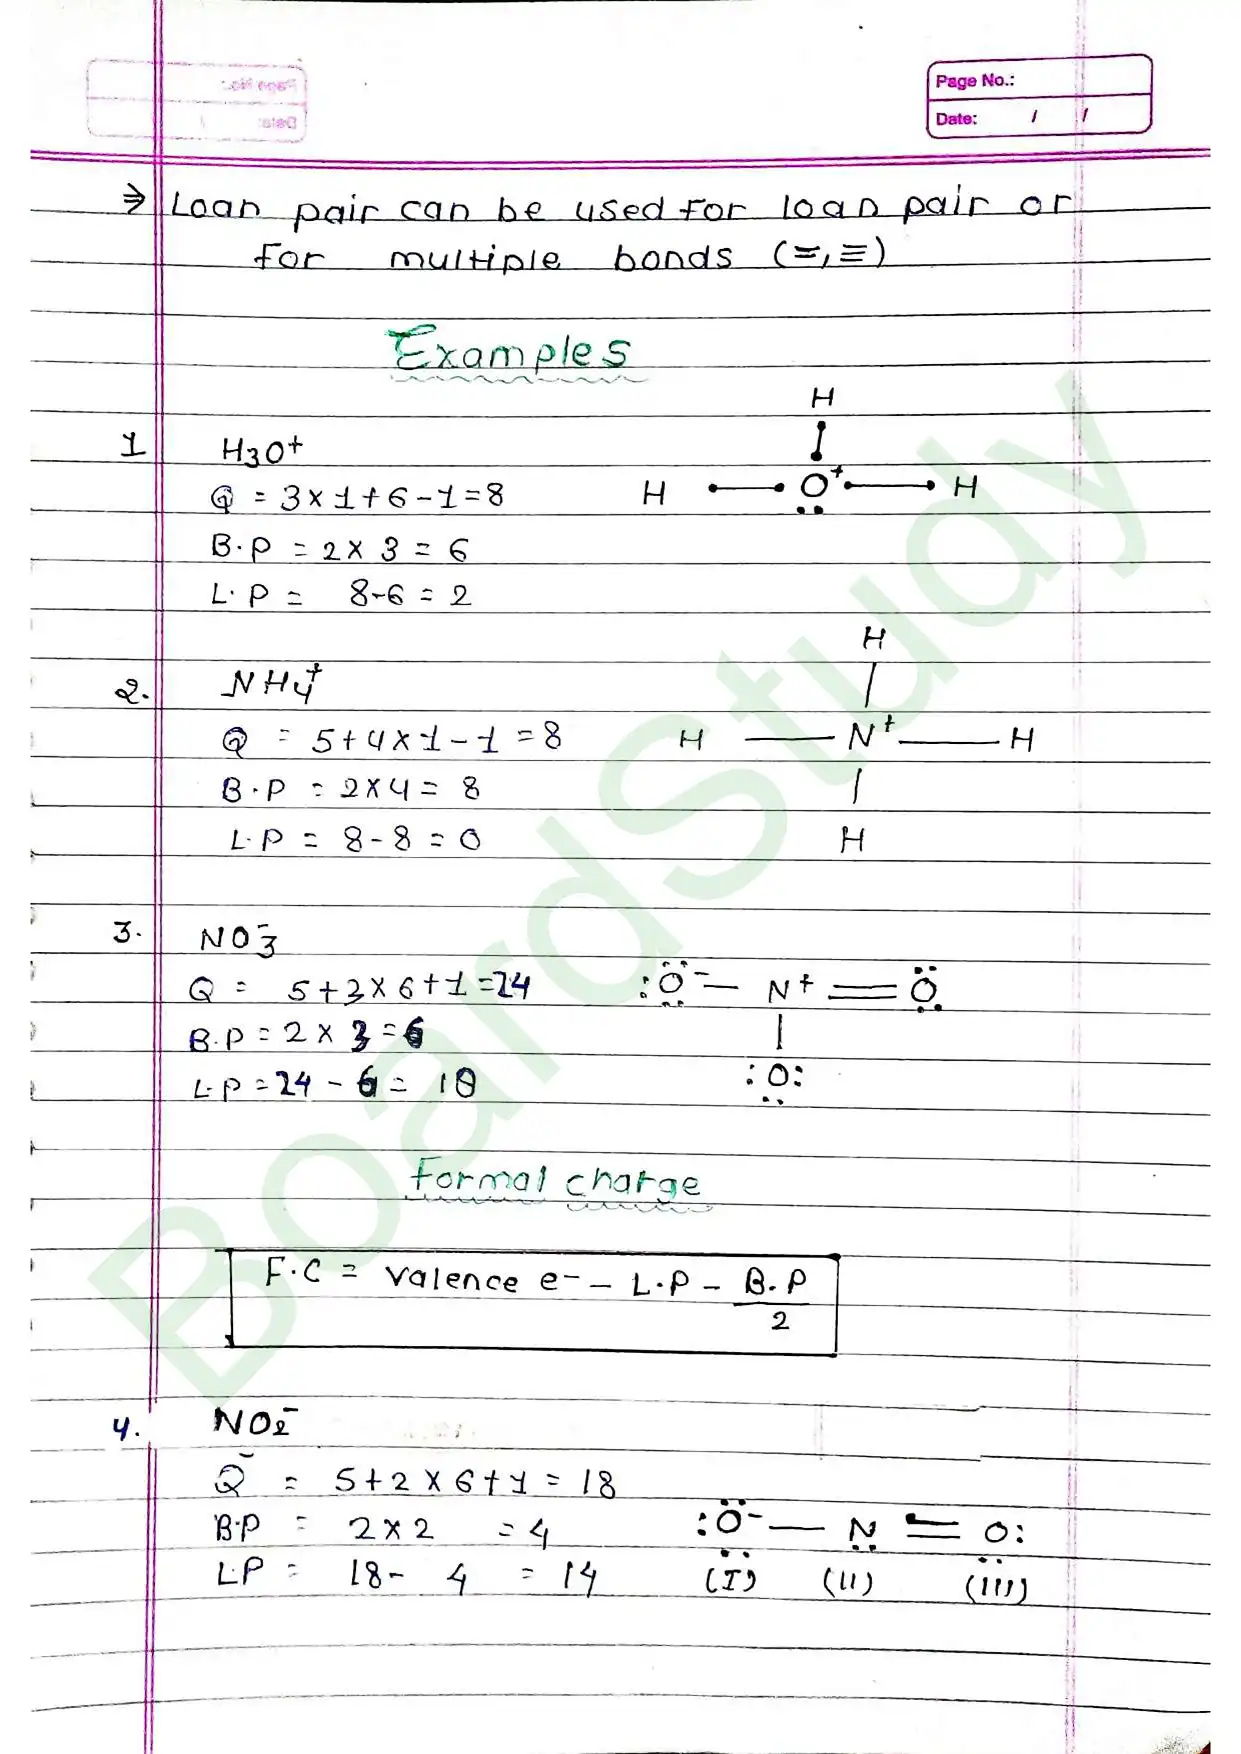 Page No.:
Date: / /
⇒ Loan pair can be used for loan pair or
for multiple bonds (=, ≡)
Examples
H
1 H3O+
Q = 3×1+6-1=8
H O+ H
B.P = 2×3 = 6
L.P = 8-6 = 2
H
2. NH4+
Q = 5+4×1-1=8
H — N+ — H
B.P = 2×4 = 8
L.P = 8-8 = 0
H
3. NO3-
Q = 5+3×6+1=24
:O- — N+ = O
B.P = 2×3=6
L.P = 24-6 = 18
:O:
Formal charge
F.C = Valence e- - L.P - B.P/2
4. NO2-
Q = 5+2×6+1=18
B.P = 2×2 = 4
:O- — N = O:
L.P = 18-4 = 14
(I) (II) (III)
BoardStudy